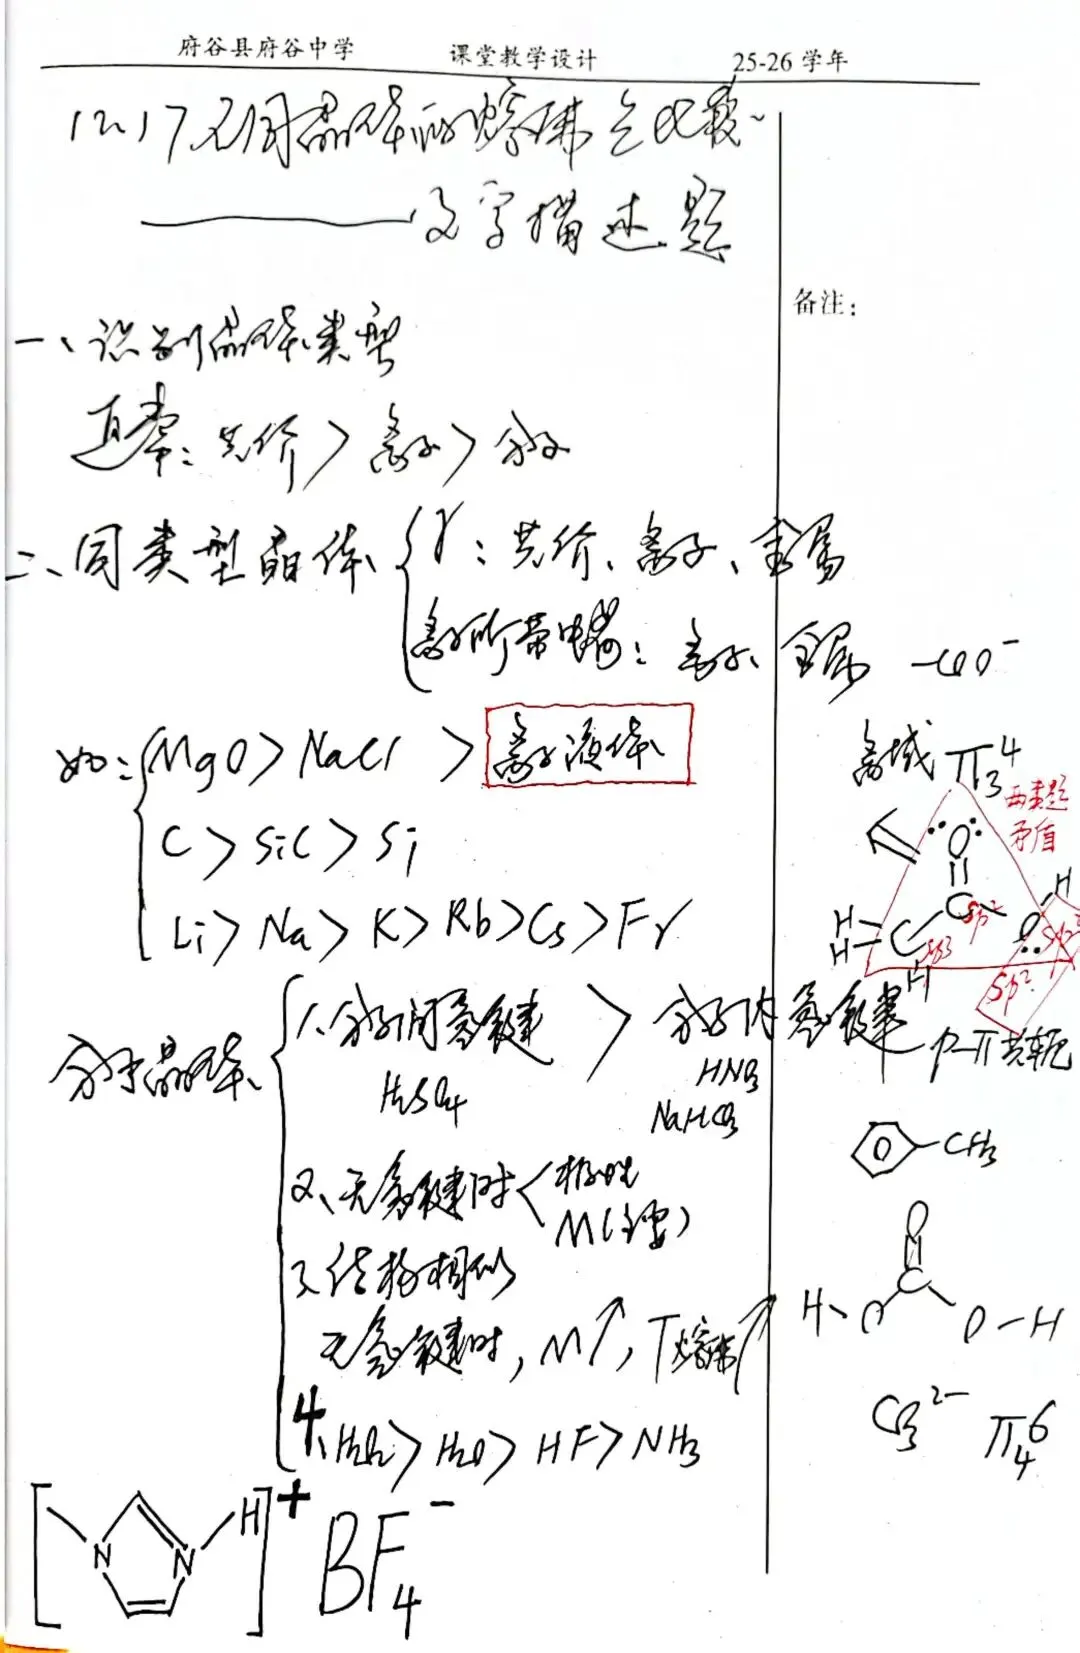 府谷县府谷中学 课堂教学设计 25-26 学年
12.17 不同晶体的熔沸点比较~
——文字描述题
备注：
一、识别晶体类型
通常：共价>离子>分子
二、同类型晶体 r：共价、离子、金属
离子所带电荷：离子、金属
-COO⁻
如：MgO>NaCl>离子液体
C>SiC>Si
Li>Na>K>Rb>Cs>Fr
离域 π₃⁴
两类题
矛盾
O
H
H
C
C
O
H
H
sp³
sp²
sp²
sp³
p-π共轭
分子晶体 1、分子间氢键 > 分子内氢键
H₂SO₄
HNO₃
NaHCO₃
2、无氢键时 极性
M(主要)
3、结构相似
无氢键时，M↑，T熔沸↑
4、H₂O₂>H₂O>HF>NH₃
CH₃
O
C
H-O
O-H
CO₃²⁻ π₄⁶
[N N H]⁺ BF₄⁻